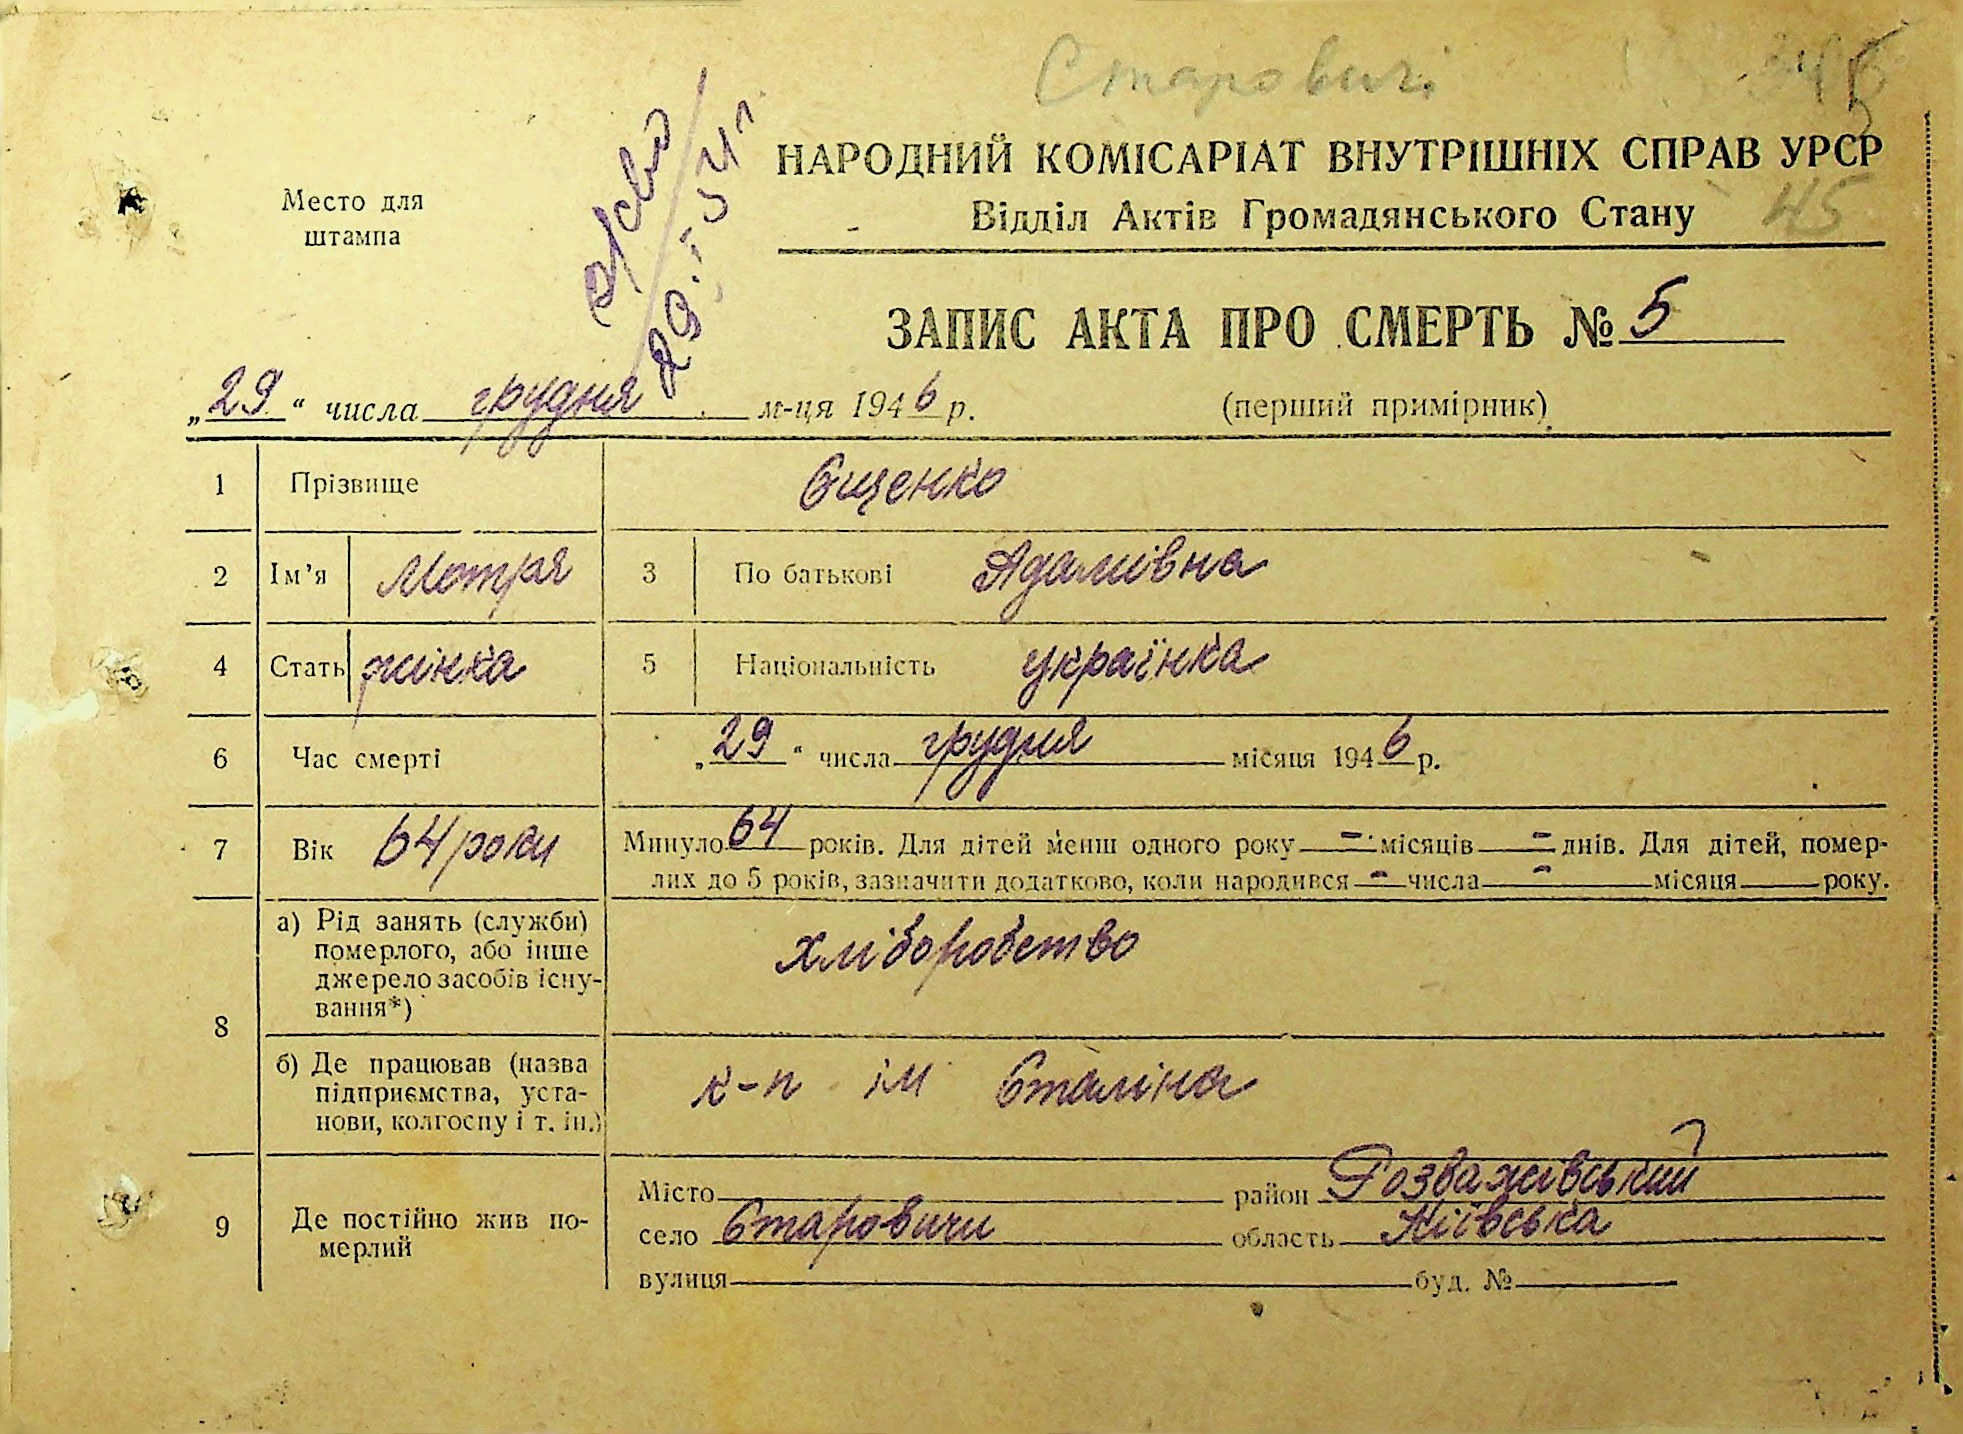 Старовичі
НАРОДНИЙ КОМІСАРІАТ ВНУТРІШНІХ СПРАВ УРСР
Відділ Актів Громадянського Стану
45
Место для
штампа
ЗАПИС АКТА ПРО СМЕРТЬ № 5
„29“ числа грудня м-ця 1946 р.
(перший примірник)
1 Прізвище Єщенко
2 Ім’я Мотря 3 По батькові Адамівна
4 Стать жінка 5 Національність українка
6 Час смерті „29“ числа грудня місяця 1946 р.
7 Вік 64 роки Минуло 64 років. Для дітей менш одного року - місяців - днів. Для дітей, помер-
лих до 5 років, зазначити додатково, коли народився - числа - місяця року.
8 а) Рід занять (служби)
померлого, або інше
джерело засобів існу-
вання*)
хліборобство
б) Де працював (назва
підприємства, уста-
нови, колгоспу і т. ін.)
к-п ім Сталіна
9 Де постійно жив по-
мерлий
Місто район Розважівський
село Старовичи область Київська
вулиця буд. №